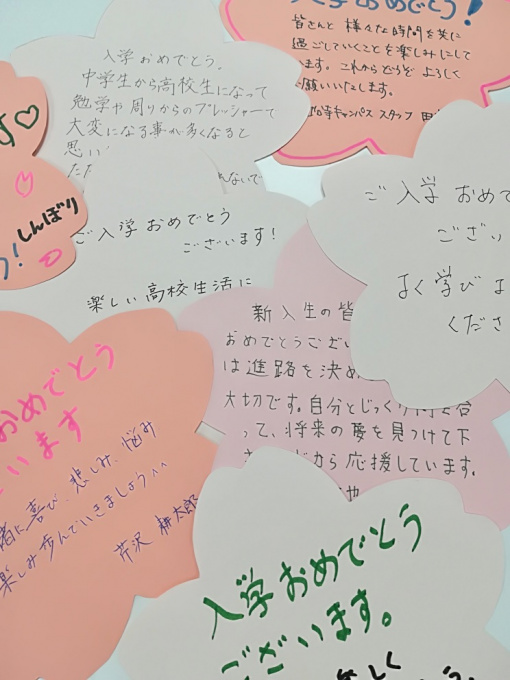 入学おめでとう!
皆さんと 様々な時間を共に
過ごしていくことを楽しみにして
います。これからどうぞ よろしく
お願いいたします。
キャンパス スタッフ
入学おめでとう。
中学生から高校生になって
勉学や周りからのプレッシャーで
大変になる事が多くなると
思い
れないで
す♡
しんぼり
う!
ご入学おめでとう
ございます!
楽しい高校生活に
ご入学 おめで
ござい
よく学び よ
くださ
新入生の皆
おめでとうござい
は進路を決め
大切です。自分とじっくり
って、将来の夢を見つけて下
から応援しています。
おめでとう
います
緒に喜び、悲しみ、悩み
楽しみ歩んでいきましょう^^
芹沢 耕太郎
入学おめでとう
ございます。
しく